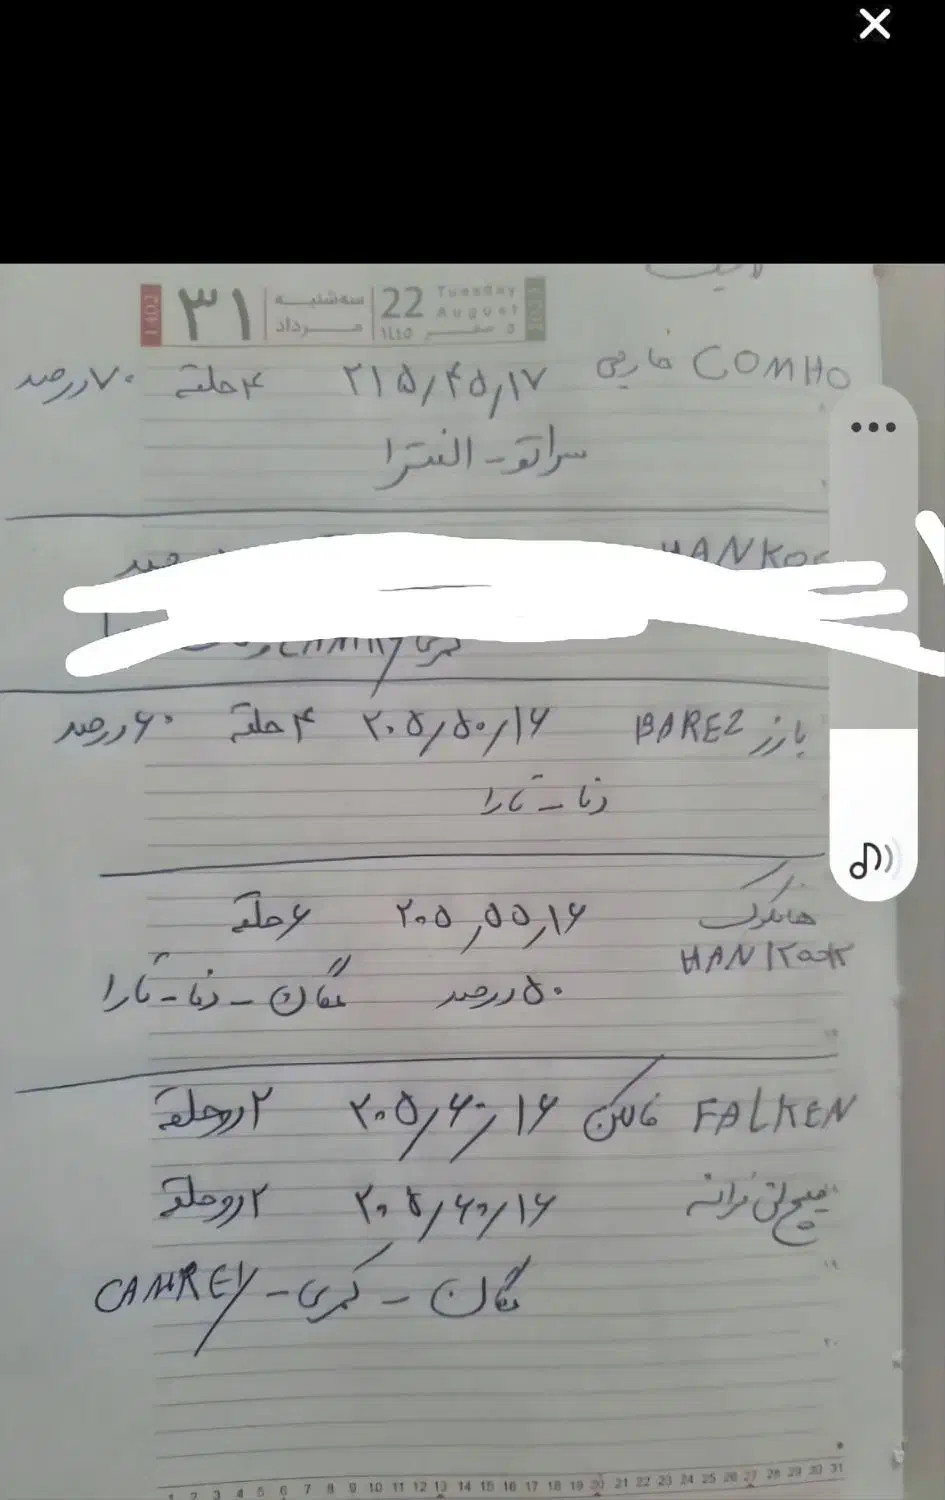 1402 ۳۱ سه‌شنبه مرداد 22 ١٤٤٥ ٥ صفر Tuesday August 2023
COMHO خارجی ۲۱۵/۴۵/۱۷ ۴حلقه ۷۰درصد
سراتو - النترا
HANKOO
کمری CAMRY
بارز BAREZ ۲۰۵/۵۰/۱۶ ۴حلقه ۶۰درصد
دنا - تارا
هانکوک ۲۰۵/۵۵/۱۶ ۶حلقه
HANKOOK ۵۰درصد مگان - دنا - تارا
FALKEN فالکن ۲۰۵/۶۰/۱۶ ۲دوحلقه
میچلن فرانسه ۲۰۵/۶۰/۱۶ ۲دوحلقه
مگان - کمری - CAMREY
1 2 3 4 5 6 7 8 9 10 11 12 13 14 15 16 17 18 19 20 21 22 23 24 25 26 27 28 29 30 31